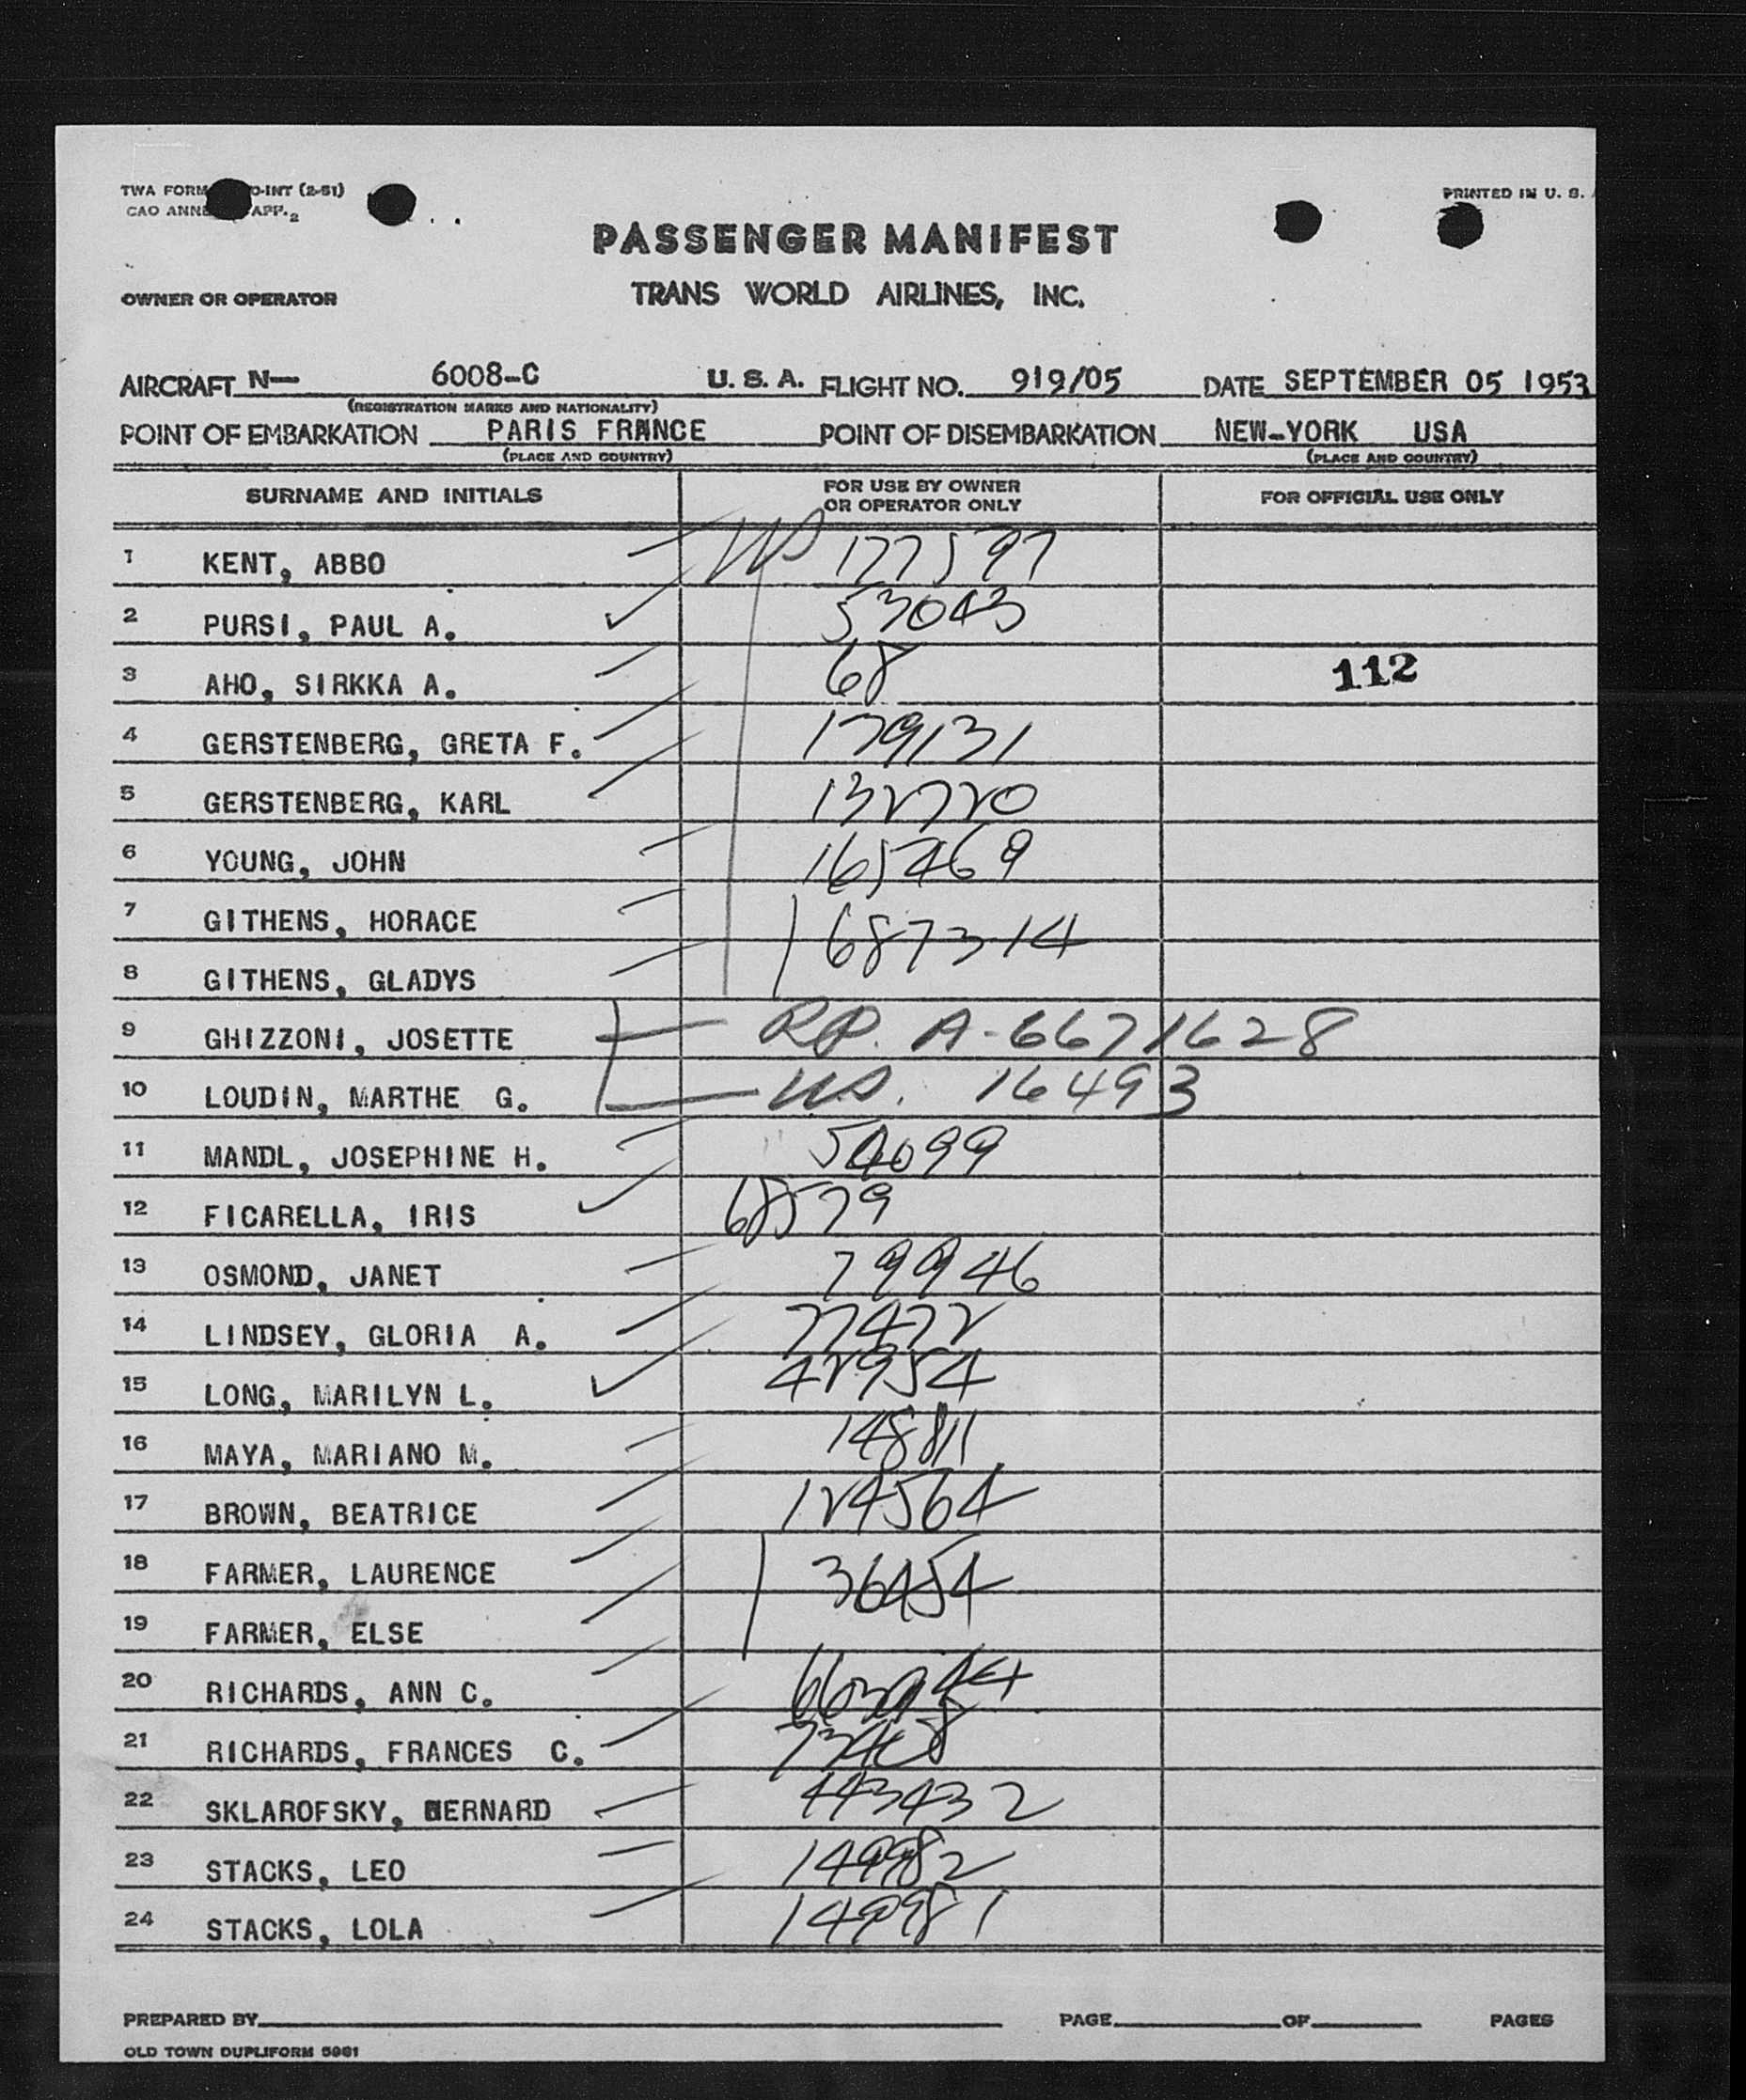 TWA FORM O-INT (2-51)
CAO ANNE APP. 2
PRINTED IN U. S.
PASSENGER MANIFEST
OWNER OR OPERATOR TRANS WORLD AIRLINES, INC.
AIRCRAFT N— 6008-C U. S. A. FLIGHT NO. 919/05 DATE SEPTEMBER 05 1953
(REGISTRATION MARKS AND NATIONALITY)
POINT OF EMBARKATION PARIS FRANCE POINT OF DISEMBARKATION NEW-YORK USA
(PLACE AND COUNTRY) (PLACE AND COUNTRY)
SURNAME AND INITIALS FOR USE BY OWNER OR OPERATOR ONLY FOR OFFICIAL USE ONLY
1 KENT, ABBO US 177597
2 PURSI, PAUL A. 53043
3 AHO, SIRKKA A. 68 112
4 GERSTENBERG, GRETA F. 179131
5 GERSTENBERG, KARL 132720
6 YOUNG, JOHN 165469
7 GITHENS, HORACE 687314
8 GITHENS, GLADYS
9 GHIZZONI, JOSETTE RP. A-6671628
10 LOUDIN, MARTHE G. US. 16493
11 MANDL, JOSEPHINE H. 54099
12 FICARELLA, IRIS 68579
13 OSMOND, JANET 79946
14 LINDSEY, GLORIA A. 77472
15 LONG, MARILYN L. 42954
16 MAYA, MARIANO M. 148811
17 BROWN, BEATRICE 124564
18 FARMER, LAURENCE 36454
19 FARMER, ELSE
20 RICHARDS, ANN C.
21 RICHARDS, FRANCES C.
22 SKLAROFSKY, BERNARD 443432
23 STACKS, LEO 149982
24 STACKS, LOLA 149981
PREPARED BY PAGE OF PAGES
OLD TOWN DUPLIFORM 5981